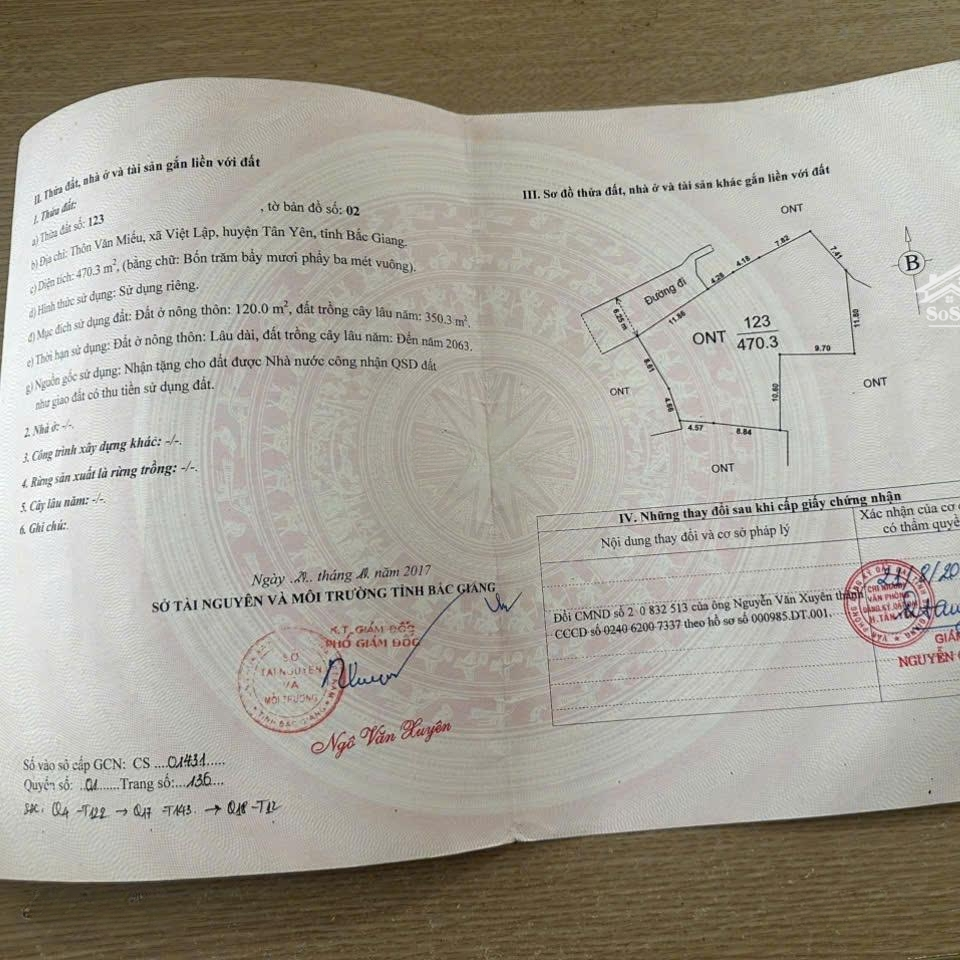 II. Thửa đất, nhà ở và tài sản gắn liền với đất
1. Thửa đất:
a) Thửa đất số: 123 , tờ bản đồ số: 02
b) Địa chỉ: Thôn Văn Miếu, xã Việt Lập, huyện Tân Yên, tỉnh Bắc Giang.
c) Diện tích: 470.3 m², (bằng chữ: Bốn trăm bẩy mươi phẩy ba mét vuông).
d) Hình thức sử dụng: Sử dụng riêng.
đ) Mục đích sử dụng đất: Đất ở nông thôn: 120.0 m², đất trồng cây lâu năm: 350.3 m².
e) Thời hạn sử dụng: Đất ở nông thôn: Lâu dài, đất trồng cây lâu năm: Đến năm 2063.
g) Nguồn gốc sử dụng: Nhận tặng cho đất được Nhà nước công nhận QSD đất
như giao đất có thu tiền sử dụng đất.
2. Nhà ở: -/-.
3. Công trình xây dựng khác: -/-.
4. Rừng sản xuất là rừng trồng: -/-.
5. Cây lâu năm: -/-.
6. Ghi chú:
Ngày .. tháng .. năm 2017
SỞ TÀI NGUYÊN VÀ MÔI TRƯỜNG TỈNH BẮC GIANG
K.T GIÁM ĐỐC
PHÓ GIÁM ĐỐC
SỞ
TÀI NGUYÊN
VÀ
MÔI TRƯỜNG
TỈNH BẮC GIANG
Ngô Văn Xuyên
Số vào sổ cấp GCN: CS ....01431.....
Quyển số: ..01......Trang số:....136....
Q4-T122 → Q17 -T143. → Q18-T12
III. Sơ đồ thửa đất, nhà ở và tài sản khác gắn liền với đất
ONT
7.82
7.41
4.18
4.28
Đường đi
B
6.25 m
11.86
ONT 123
470.3
11.80
9.70
ONT
6.61
4.66
10.60
ONT
4.57
8.84
ONT
SoS
IV. Những thay đổi sau khi cấp giấy chứng nhận
Nội dung thay đổi và cơ sở pháp lý
Xác nhận của cơ
có thẩm quyề
Đổi CMND số 2 0 832 513 của ông Nguyễn Văn Xuyên thành
CCCD số 0240 6200 7337 theo hồ sơ số 000985.DT.001.
CHI NHÁNH
VĂN PHÒNG
GIÁ
NGUYỄN